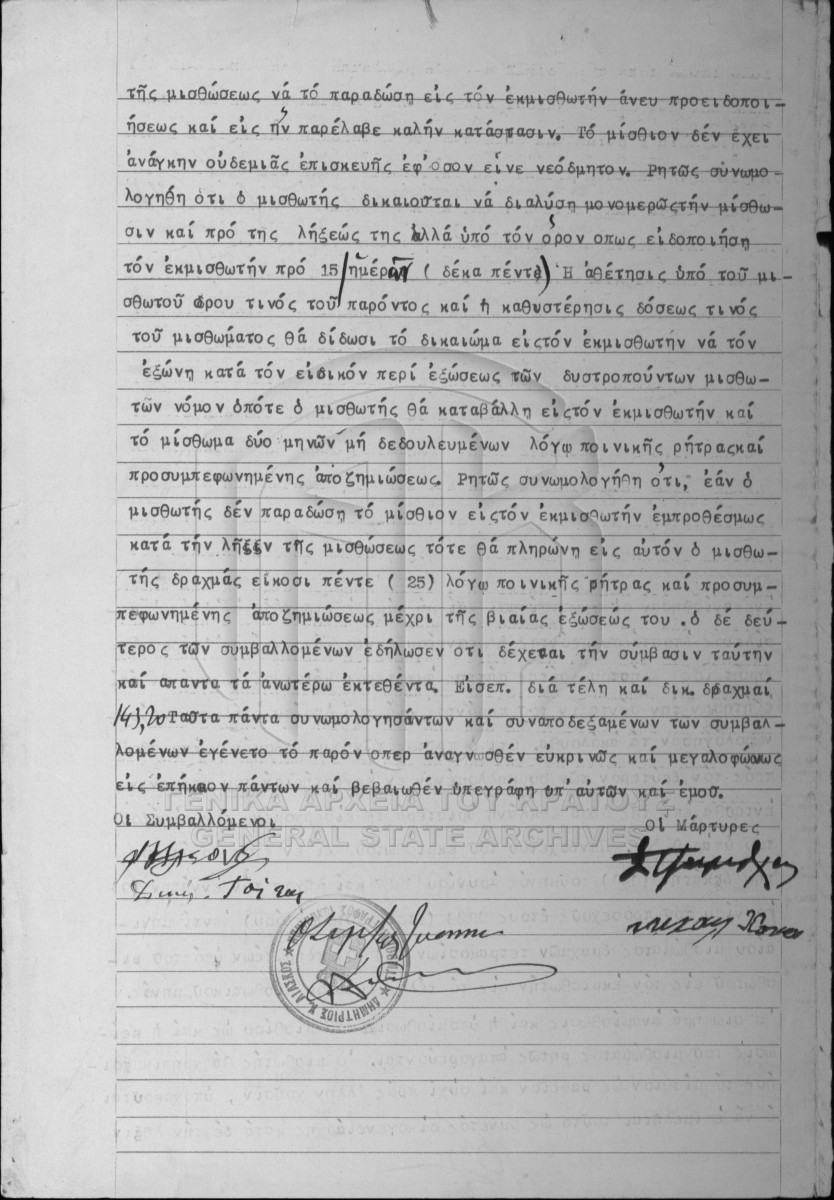 τῆς μισθώσεως νά τό παραδώσῃ εἰς τόν ἐκμισθωτήν ἄνευ προειδοποι-
ήσεως καί εἰς ἥν παρέλαβε καλήν κατάστασιν. Τό μίσθιον δέν ἔχει
ἀνάγκην οὐδεμιᾶς ἐπισκευῆς ἐφ'ὅσον εἶνε νεόδμητον. Ρητῶς συνωμο-
λογήθη ὅτι ὁ μισθωτής δικαιοῦται νά διαλύσῃ μονομερῶςτήν μίσθω-
σιν καί πρό της λήξεώς της ἀλλά ὑπό τόν ὅρον οπως εἰδοποιήσῃ
τόν ἐκμισθωτήν πρό 15 ἡμερῶν ( δέκα πέντε) Ἡ ἀθέτησις ὑπό τοῦ μι-
σθωτοῦ ὅρου τινός τοῦ παρόντος καί ἡ καθυστέρησις δόσεως τινός
τοῦ μισθώματος θά δίδωσι τό δικαιώμα εἰςτόν ἐκμισθωτήν νά τόν
ἐξώνῃ κατά τόν εἰδικόν περί ἐξώσεως τῶν δυστροπούντων μισθω-
τῶν νόμον ὁπότε ὁ μισθωτής θά καταβάλλῃ εἰςτόν ἐκμισθωτήν καί
τό μίσθωμα δύο μηνῶν μή δεδουλευμένων λόγῳ ποινικῆς ρήτραςκαί
προσυμπεφωνημένης ἀποζημιώσεως. Ρητῶς συνωμολογήθη ὅτι, ἐάν ὁ
μισθωτής δέν παραδώσῃ τό μίσθιον εἰςτόν ἐκμισθωτήν ἐμπροθέσμως
κατά τήν λῆξιν τῆς μισθώσεως τότε θά πληρώνῃ εἰς αὐτόν ὁ μισθω-
τής δραχμάς εἴκοσι πέντε ( 25) λόγῳ ποινικῆς ρήτρας καί προσυμ-
πεφωνημένης ἀποζημιώσεως μέχρι τῆς βιαίας ἐξώσεώς του . ὁ δέ δεύ-
τερος τῶν συμβαλλομένων ἐδήλωσεν οτι δέχεται τήν σύμβασιν ταύτην
καί απαντα τά ἀνωτέρω ἐκτεθέντα. Εἰσεπ. διά τέλη καί δικ. δραχμαί
143,20 Ταῦτα πάντα συνωμολογησάντων καί συναποδεξαμένων των συμβαλ-
λομένων ἐγένετο τό παρόν οπερ ἀναγνωσθέν εὐκρινῶς καί μεγαλοφώνως
εἰς ἐπήκοον πάντων καί βεβαιωθέν ὑπεγράφη ὑπ'αὐτῶν καί ἐμοῦ.
ΓΕΝΙΚΑ ΑΡΧΕΙΑ ΤΟΥ ΚΡΑΤΟΥΣ
Οἱ Συμβαλλόμενοι Οἱ Μάρτυρες
GENERAL STATE ARCHIVES
ΔΗΜΗΤΡΙΟΣ Κ. ΔΙΑΣΚΟΣ